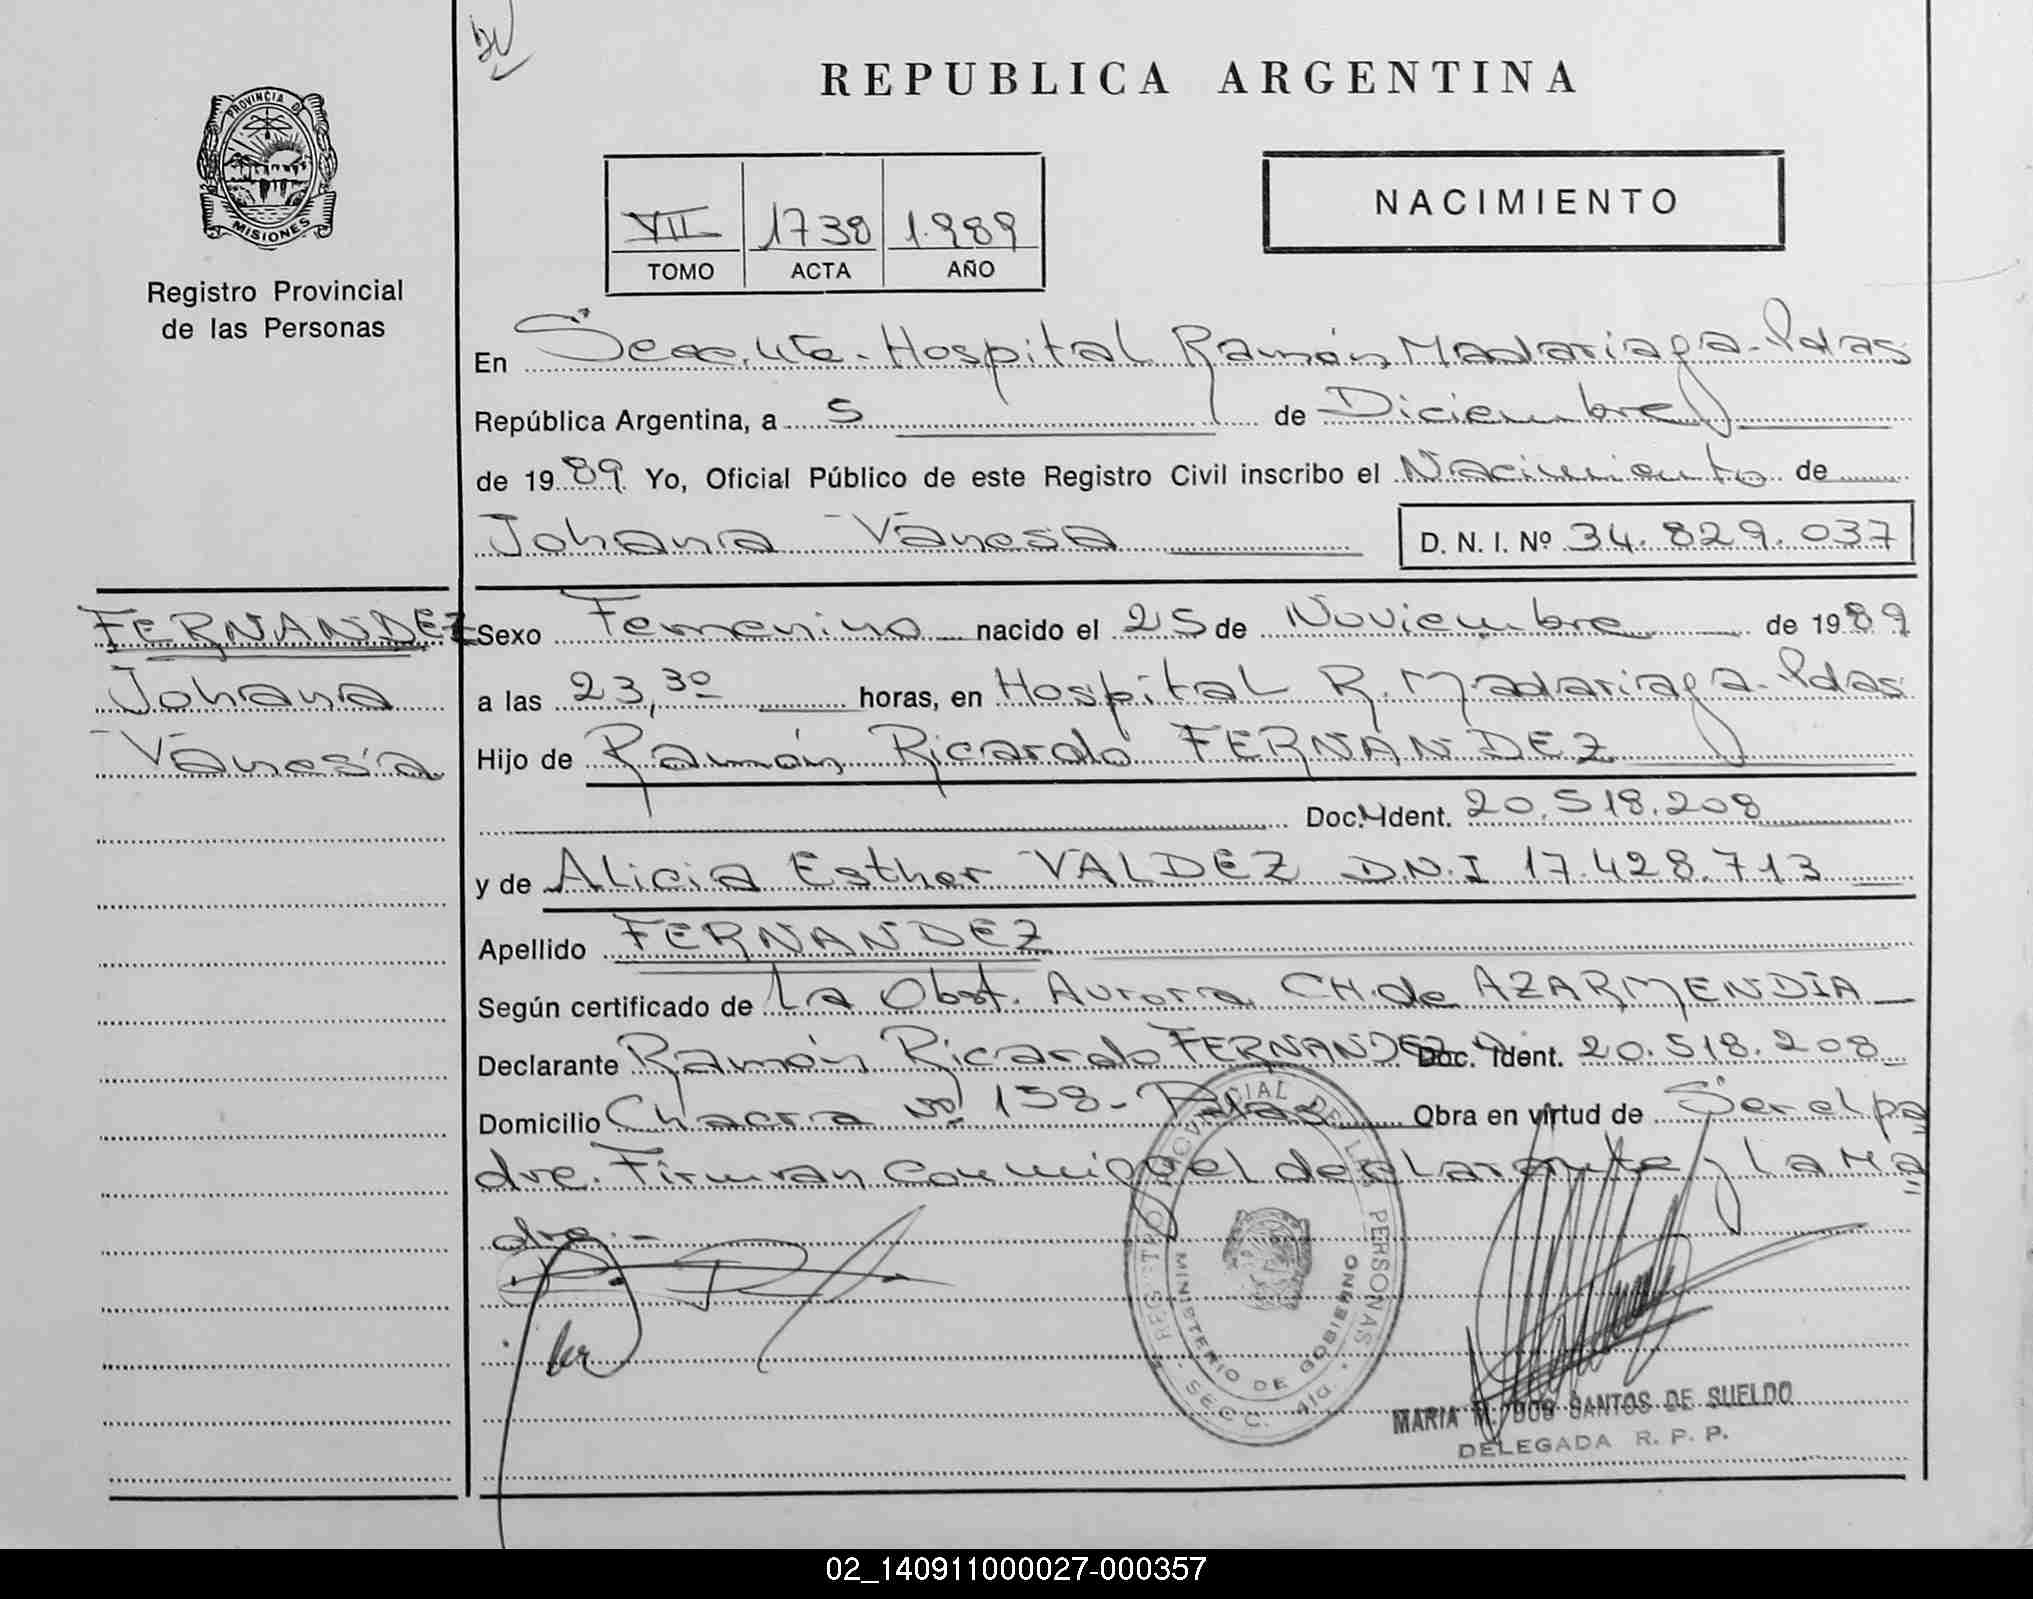 REPUBLICA ARGENTINA
PROVINCIA D
MISIONES
Registro Provincial
de las Personas
VII 1738 1.989
TOMO ACTA AÑO
NACIMIENTO
En Secc. 4ta. Hospital Ramón Madariaga - Pdas
República Argentina, a 5 de Diciembre
de 1989 Yo, Oficial Público de este Registro Civil inscribo el Nacimiento de
Johana Vanesa D. N. I. Nº 34.829.037
FERNANDEZ
Johana
Vanesa
Sexo Femenino nacido el 25 de Noviembre de 1989
a las 23,30 horas, en Hospital R. Madariaga - Pdas
Hijo de Ramón Ricardo FERNANDEZ
Doc. Ident. 20.518.208
y de Alicia Esther VALDEZ D.N.I 17.428.713
Apellido FERNANDEZ
Según certificado de La Obst. Aurora CH. de AZARMENDIA
Declarante Ramón Ricardo FERNANDEZ Doc. Ident. 20.518.208
Domicilio Chacra Nº 158 - Pdas Obra en virtud de Ser el pa
dre. Firman conmigo el declarante y la Ma
dre. -
REGISTRO PROVINCIAL DE LAS PERSONAS
MINISTERIO DE GOBIERNO
SECC. 4ta.
MARIA M. DOS SANTOS DE SUELDO
DELEGADA R. P. P.
02_140911000027-000357